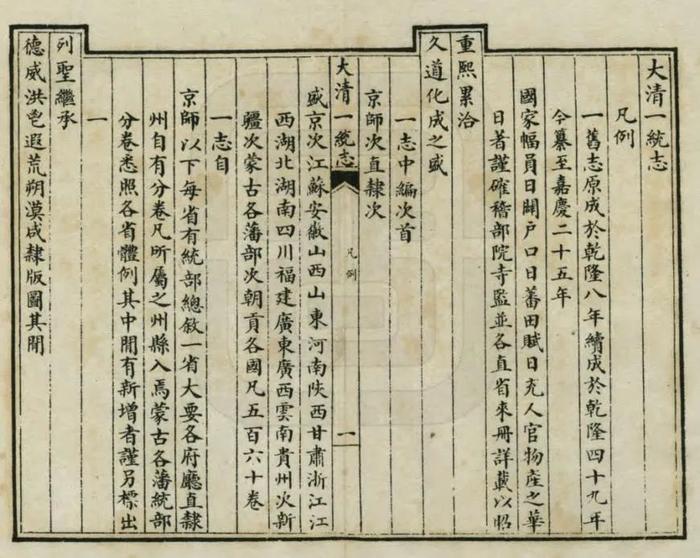 大清一統志
凡例
一舊志原成於乾隆八年續成於乾隆四十九年
今纂至嘉慶二十五年
國家幅員日闢戶口日蕃田賦日充人官物產之華
日著謹確稽部院寺監並各直省來冊詳載以昭
重熙累洽
久道化成之盛
一志中編次首
京師次直隸次
大清一統志
凡例
一
盛京次江蘇安徽山西山東河南陝西甘肅浙江江
西湖北湖南四川福建廣東廣西雲南貴州次新
疆次蒙古各藩部次朝貢各國凡五百六十卷
一志自
京師以下每省有統部總敘一省大要各府廳直隸
州自有分卷凡所屬之州縣入焉蒙古各藩統部
分卷悉照各省體例其中閒有新增者謹另標出
一
列聖繼承
德威洪鬯遐荒朔漠咸隸版圖其開